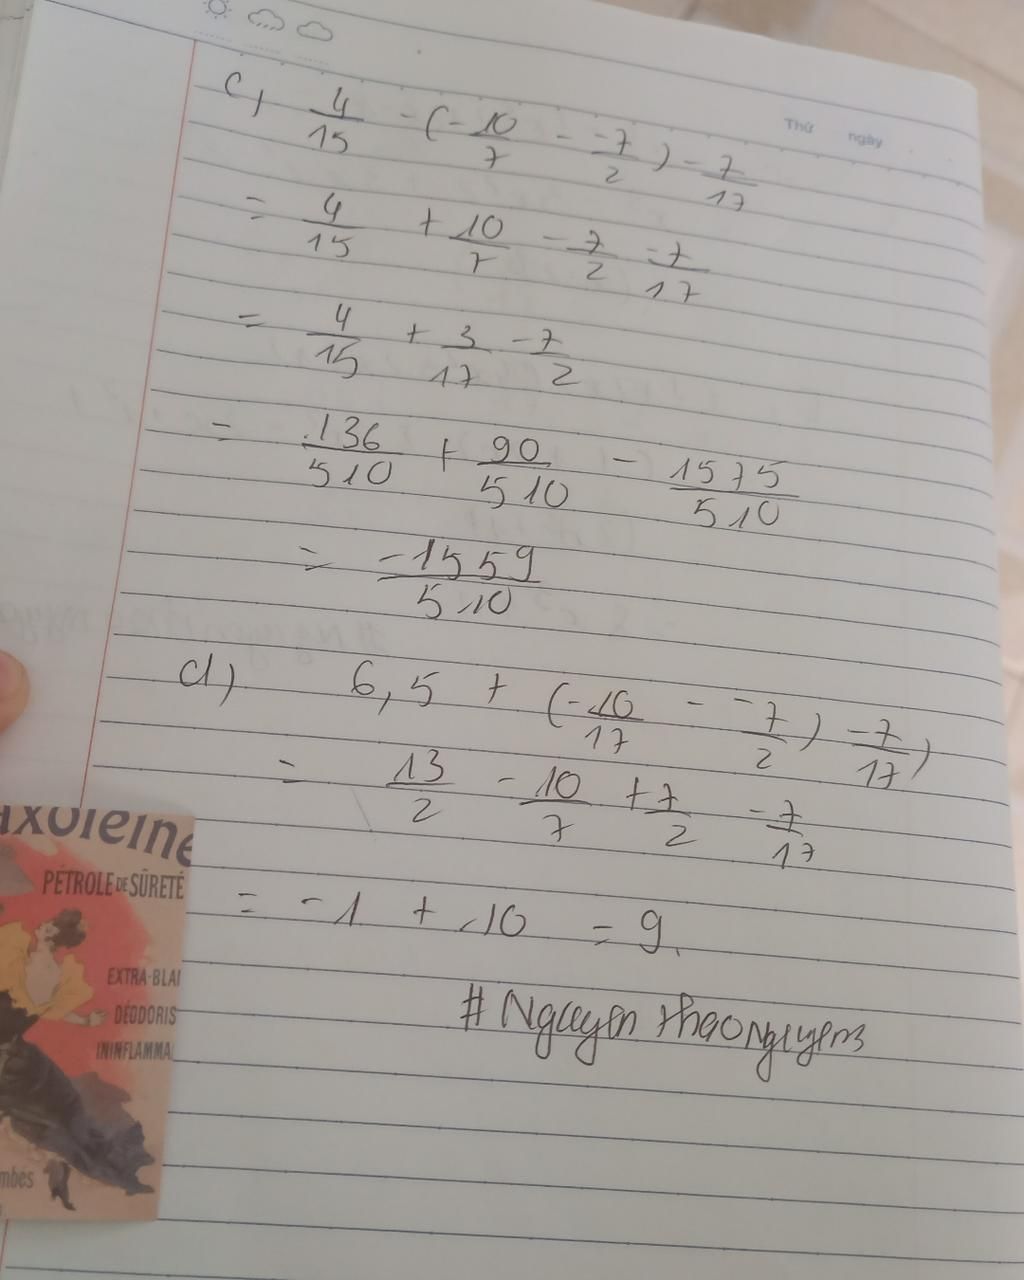 Thứ ngày
c) 4/15 - (-10/7 - -7/2) - 7/17
= 4/15 + 10/7 - 7/2 - 7/17
= 4/15 + 3/17 - 7/2
= 136/510 + 90/510 - 1575/510
= -1559/510
d) 6,5 + (-10/17 - -7/2) - 7/17)
= 13/2 - 10/7 + 7/2 - 7/17
= -1 + 10 = 9.
# Nguyen thaonguyen
axoleine
PÉTROLE DE SÛRETÉ
EXTRA-BLA
DÉODORIS
ININFLAMMA
mbes